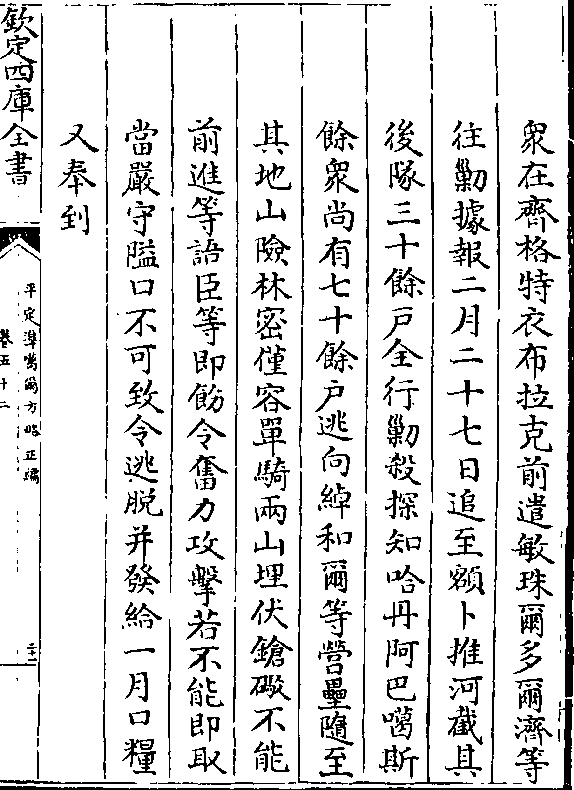 衆在齊格特衣布拉克前遣敏珠爾多爾濟等
往勦據報二月二十七日追至額卜推河截其
後隊三十餘戸全行勦殺探知哈丹阿巴噶斯
餘衆尚有七十餘户逃向綽和爾等營壘隨至
其地山險林密僅容單騎兩山埋伏鎗礟不能
前進等語臣等即飭令奮力攻擊若不能即取
當嚴守隘口不可致令逃脱并發給一月口糧
又奉到
欽定四庫全書
平定準噶爾方略正編
卷五十二
二十一